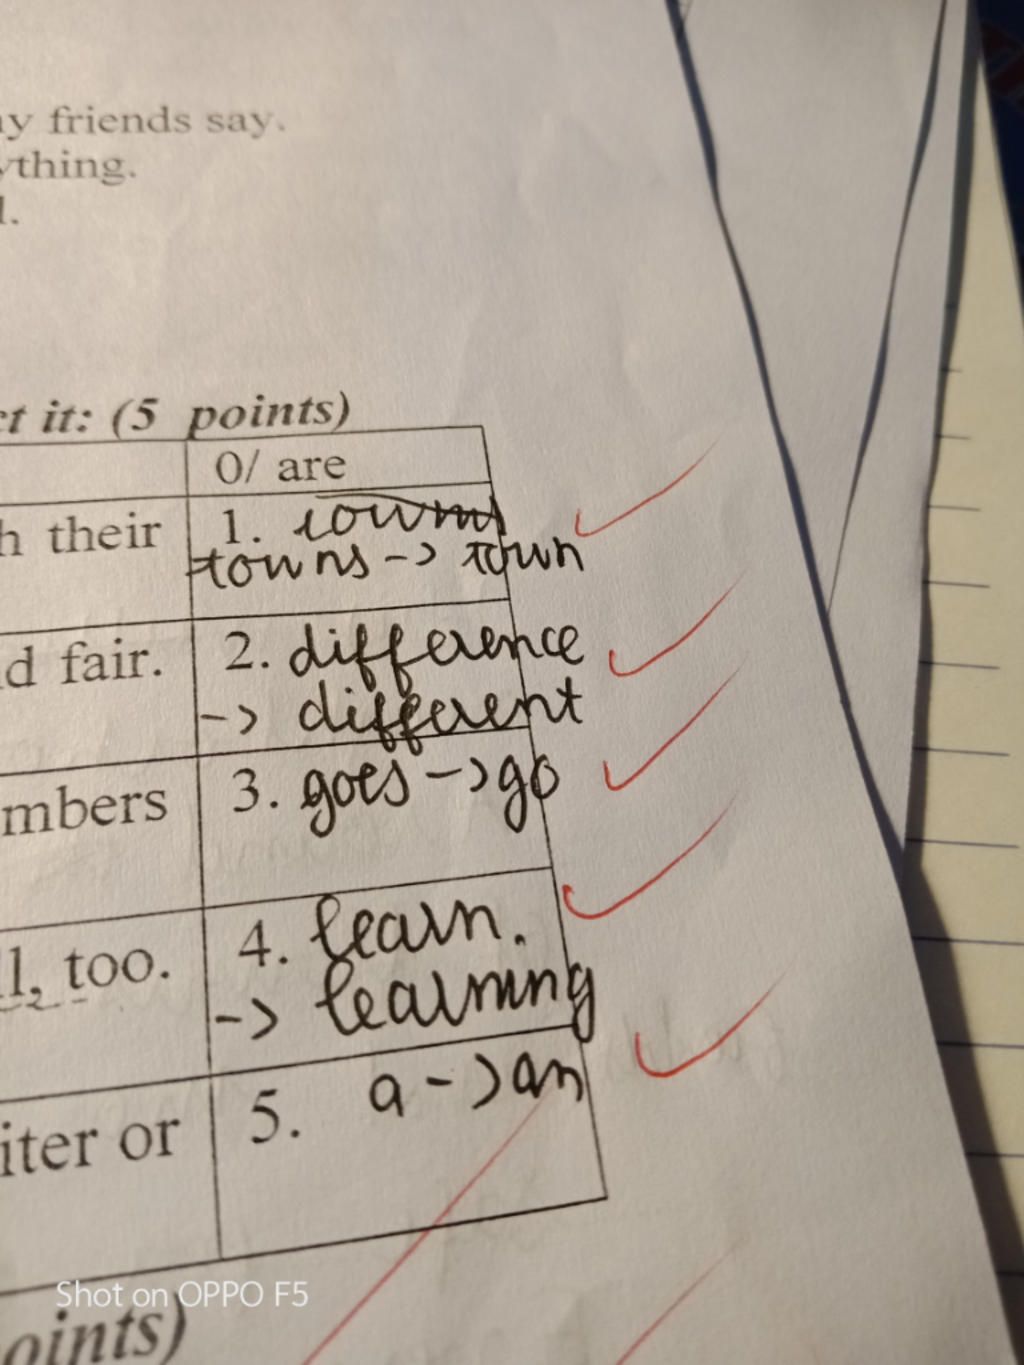 friends say.
ything.
ct it: (5 points)
0/ are
h their
1.
towns -> town
d fair.
2. difference
-> different
mbers
3. goes -> go
l, too.
4. learn.
-> learning
iter or
5. a -> an
Shot on OPPO F5
oints)